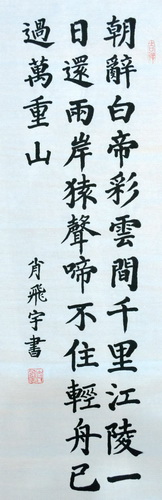 朝辭白帝彩雲間千里江陵一
日還兩岸猿聲啼不住輕舟已
過萬重山
肖飛宇書